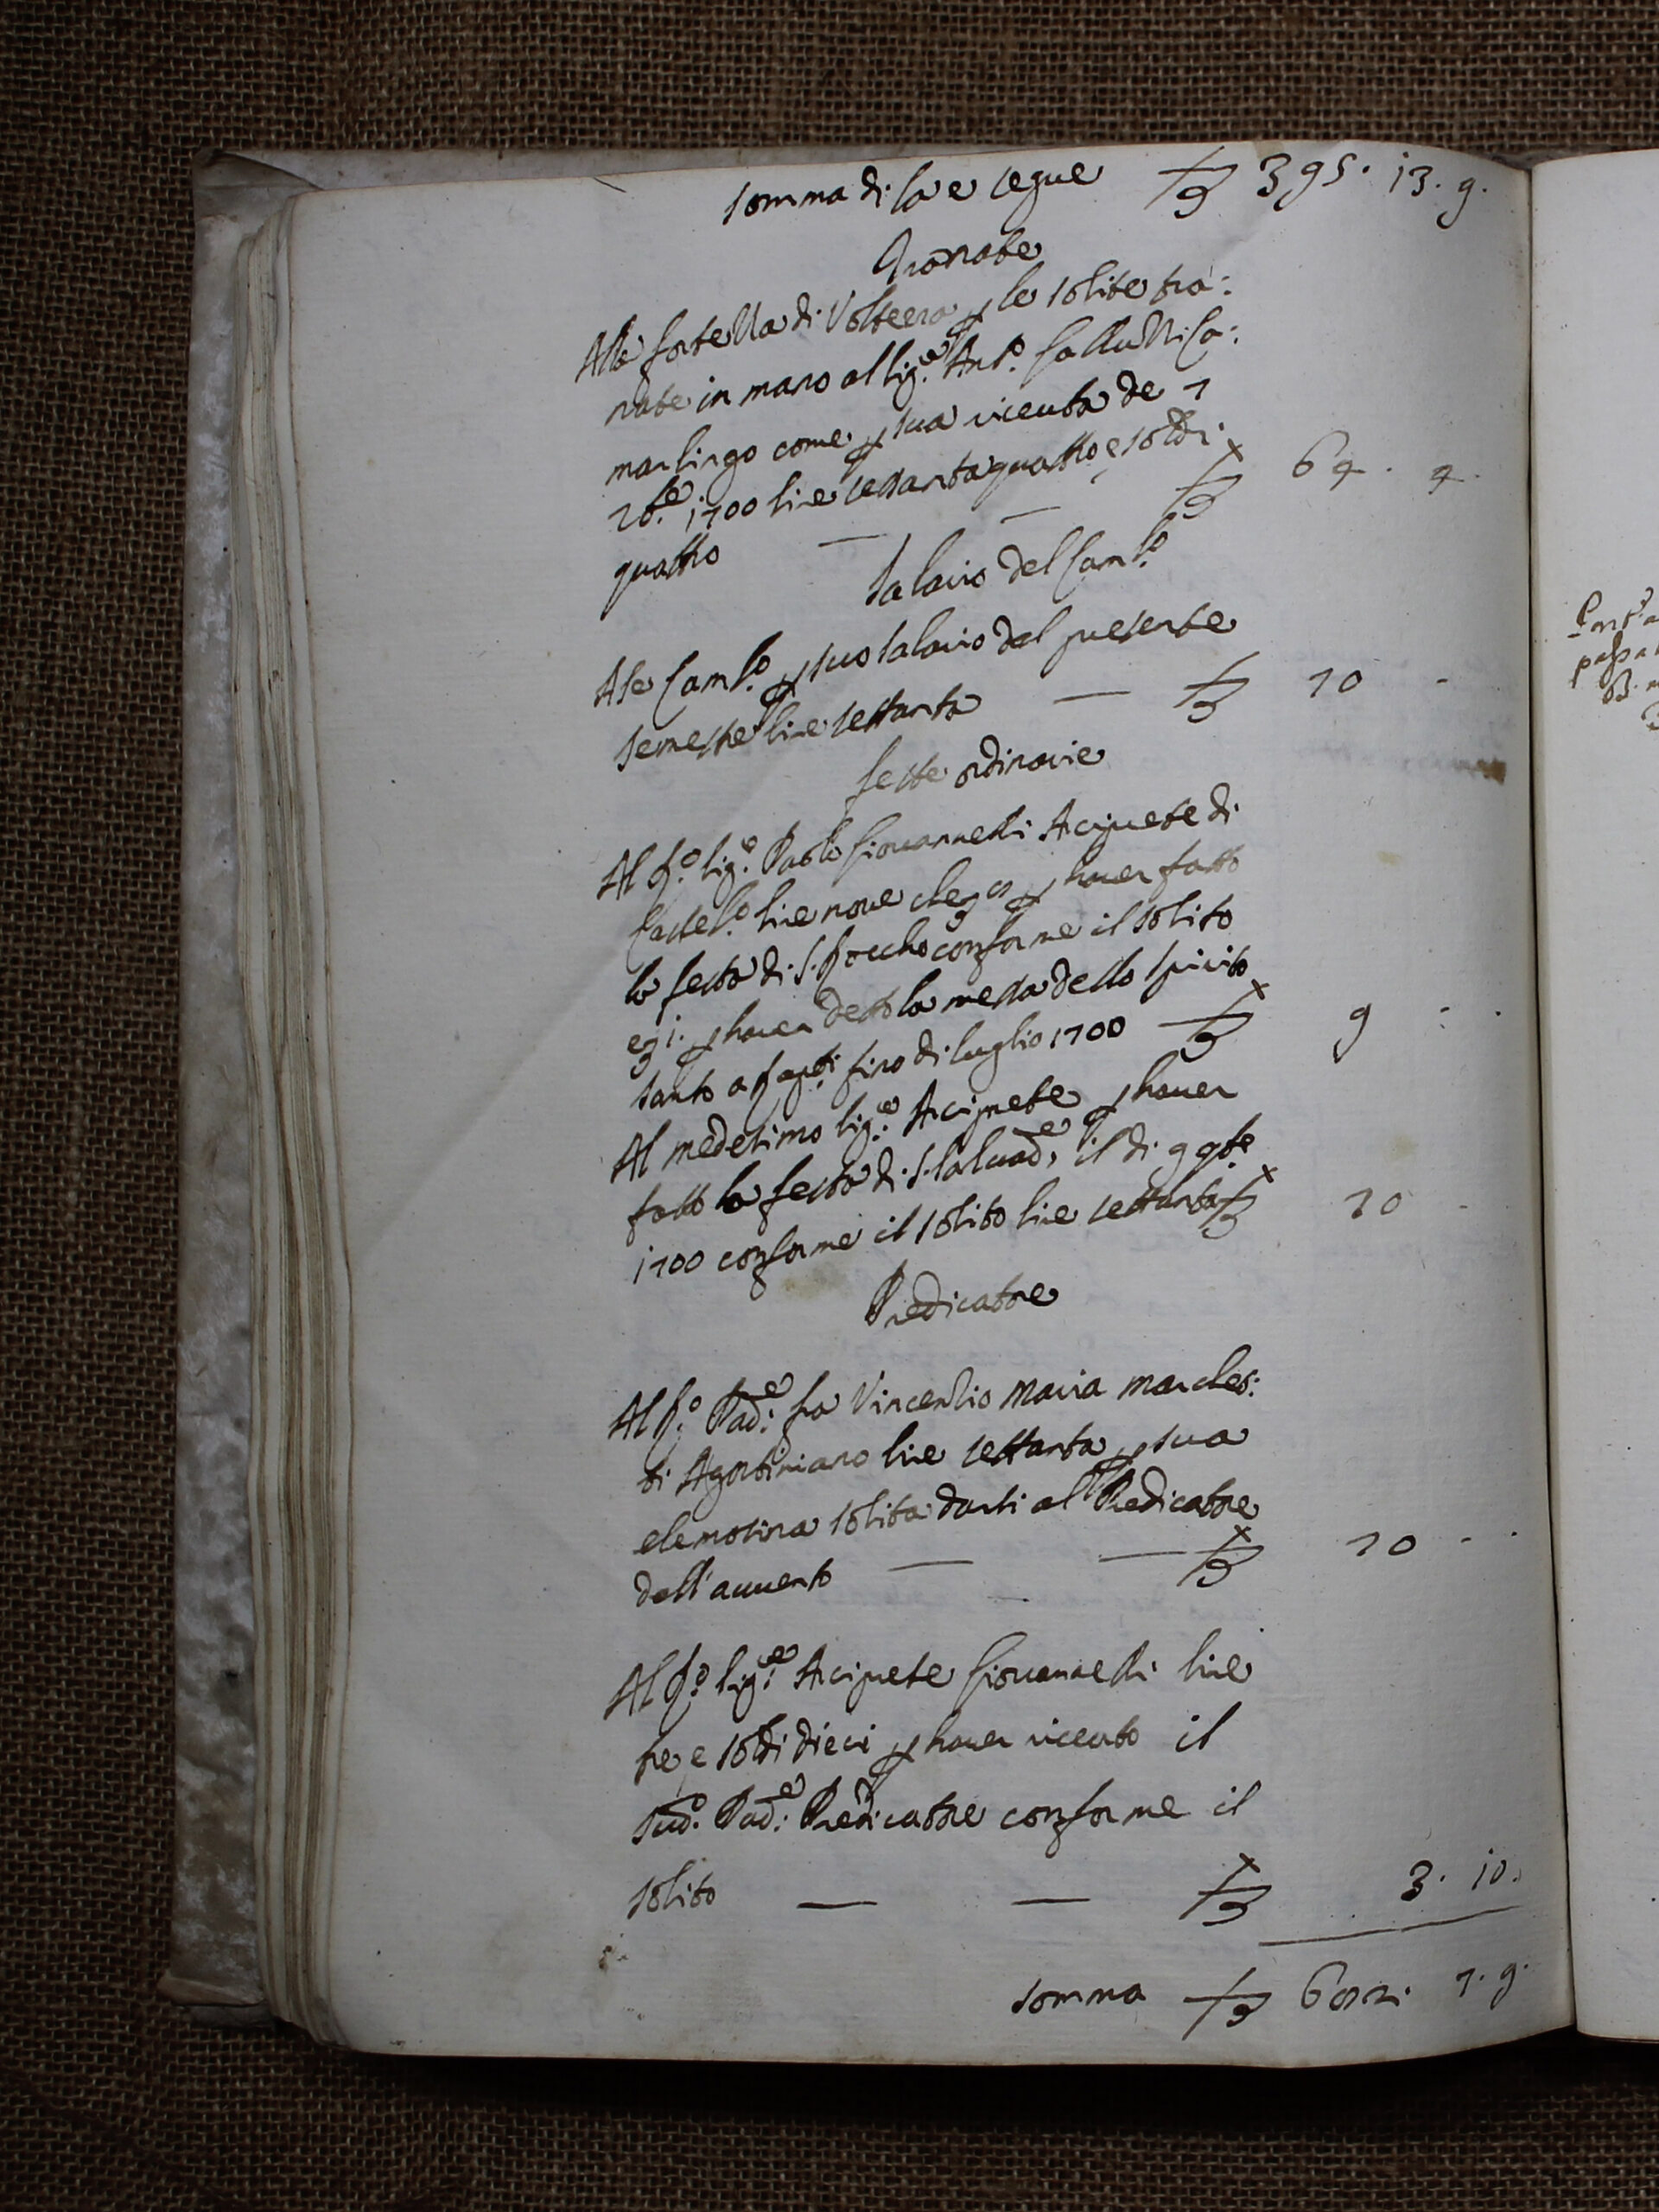 somma di la e segue ₶ 395. 13. 9.
Tranate
Alla fortezza di Volterra p le solite tra:
nate in mano al Sig.re Ant.o
come p sua riceuta de 7
7bre 1700 lire sessantaquattro e soldi
quattro — — ₶ 64. 4.
Salario del Cam.o
A Se Cam.o p suo salario del presente
semestre lire settanta — ₶ 70 -
feste ordinarie
Al R.o Sig.e Paolo Giouannelli Arciprete di
Castel.o lire noue cioe p hauer fatto
la festa di S. Roccho conforme il solito
e p hauer detto la messa dello spirito
santo a fino di luglio 1700 ₶ 9 - .
Al medesimo Sig.re Arciprete p hauer
fatto la festa di S. Saluad.e il di 9 9bre
1700 conforme il solito lire settanta ₶ 70 -
Predicatore
Al R.o Pad.e fra Vincenzio Maria Marches:
si Agostiniano lire settanta p sua
elemosina solita darsi al Predicatore
dell'auuento — — ₶ 70 - .
Al R.o Sig.re Arciprete Giouannelli lire
tre e soldi dieci p hauer riceuto il
sud.o Pad.e Predicatore conforme il
solito — — ₶ 3. 10.
somma ₶ 682. 7. 9.